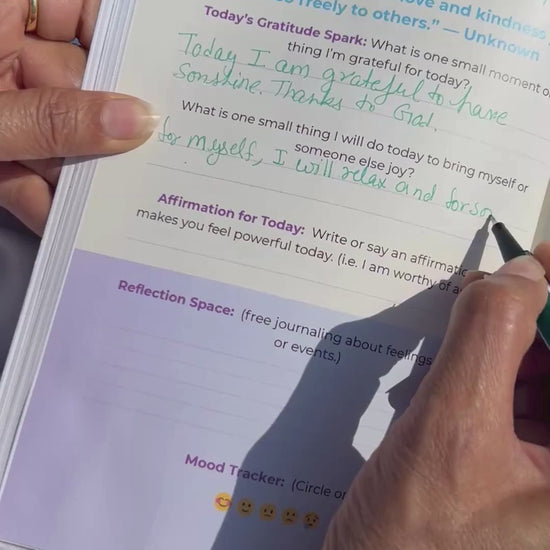 ove and kindness
freely to others.” — Unknown
Today's Gratitude Spark: What is one small moment o
thing I'm grateful for today?
Today I am grateful to have
Sonshine. Thanks to God.
What is one small thing I will do today to bring myself or
someone else joy?
for myself, I will relax and for so
Affirmation for Today: Write or say an affirmatio
makes you feel powerful today. (i.e. I am worthy of a
Reflection Space: (free journaling about feelings
or events.)
Mood Tracker: (Circle or